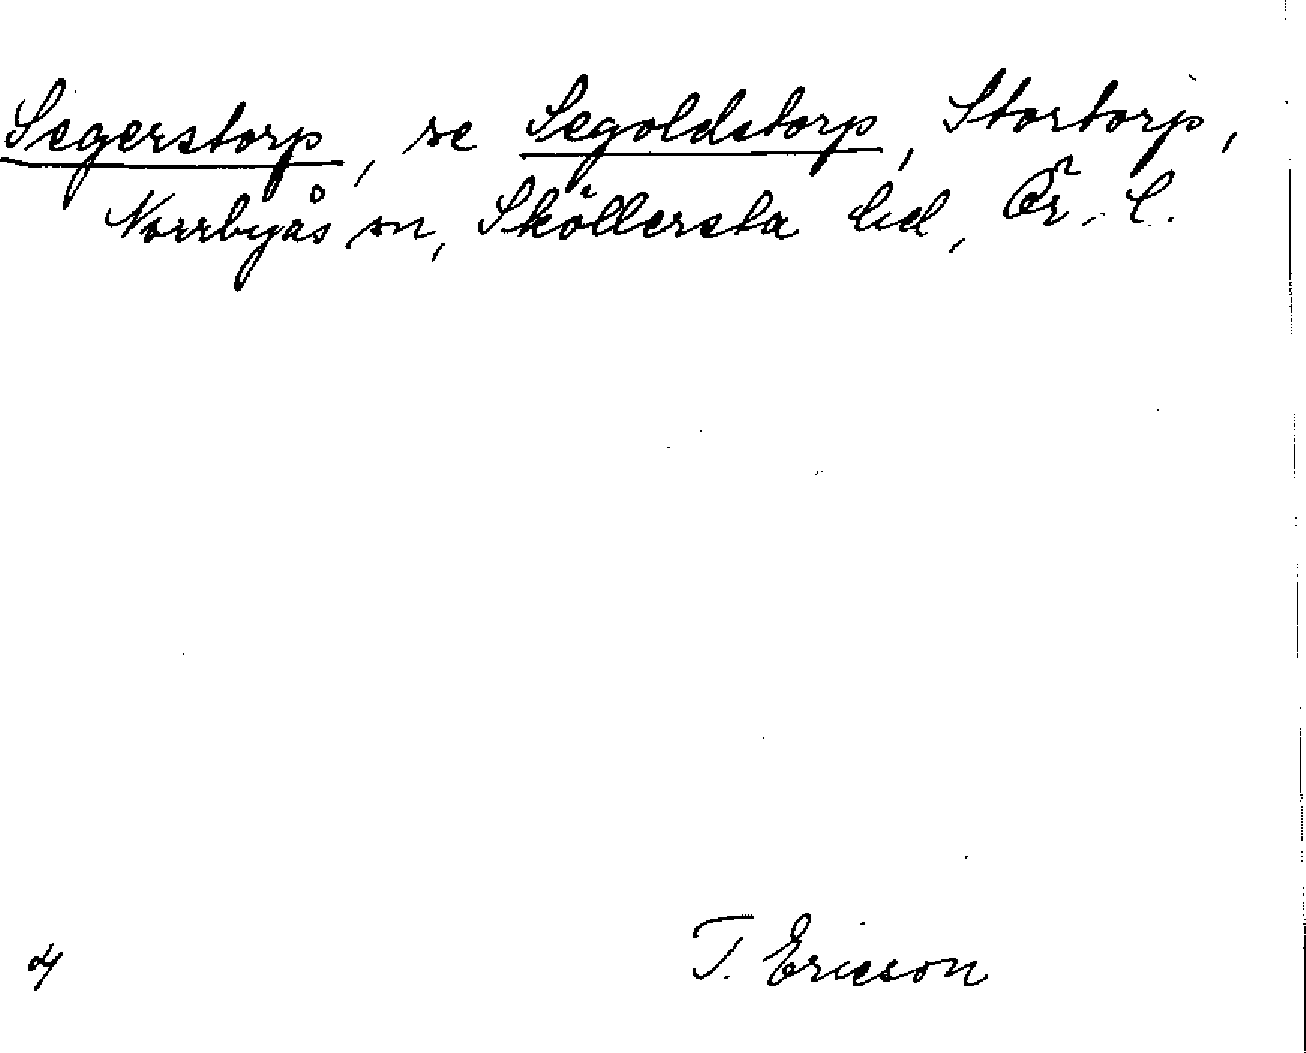 Segerstorp, se Segoldstorp, Stortorp,
Norrbyås sn, Sköllersta hd, Ör. l.
T. Ericson